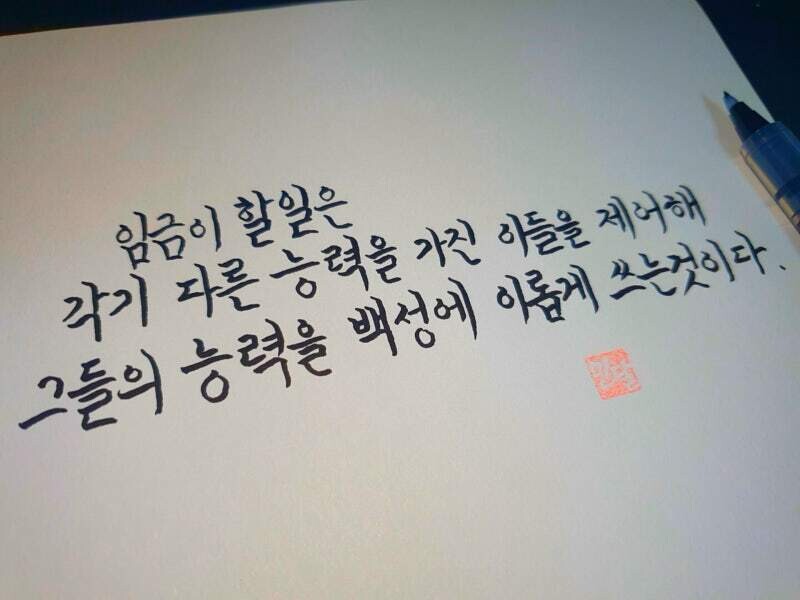 임금이 할일은
각기 다른 능력을 가진 이들을 제어해
그들의 능력을 백성에 이롭게 쓰는것이다.